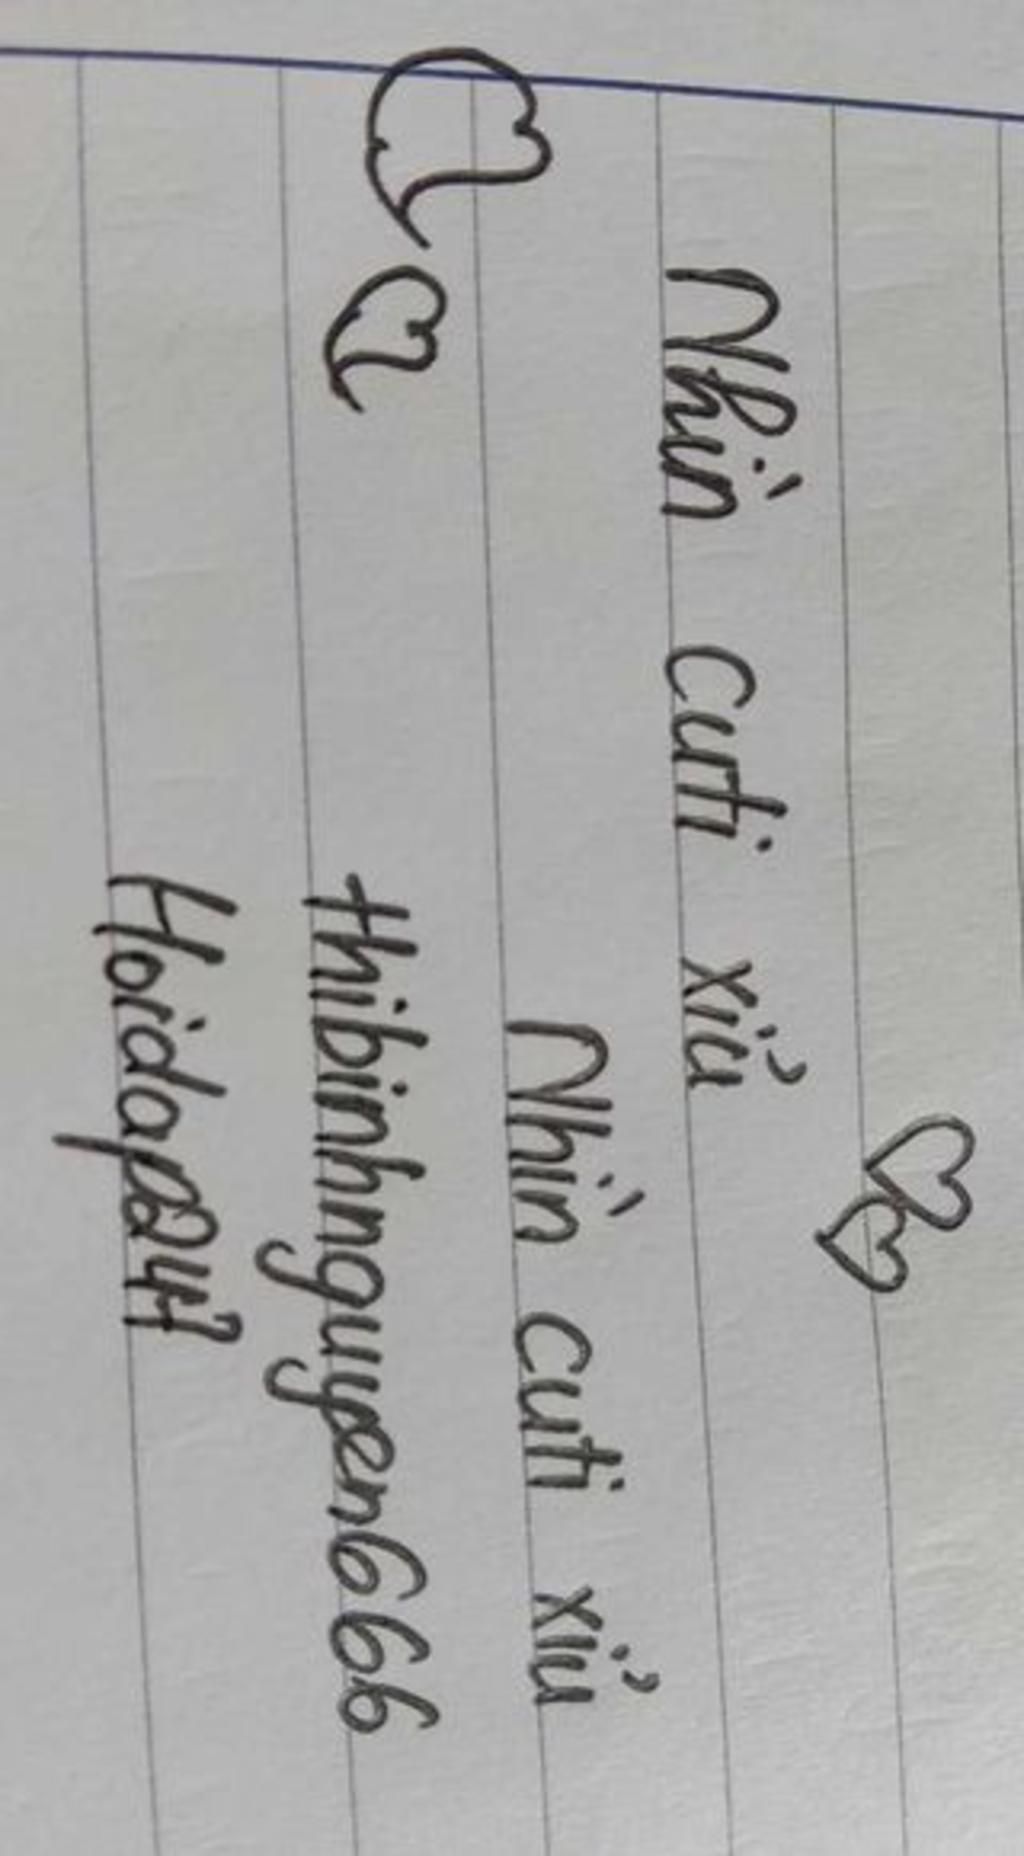 Nhìn cuti xỉu
Nhìn cuti xỉu
thibinhnguyen666
Hoidap247